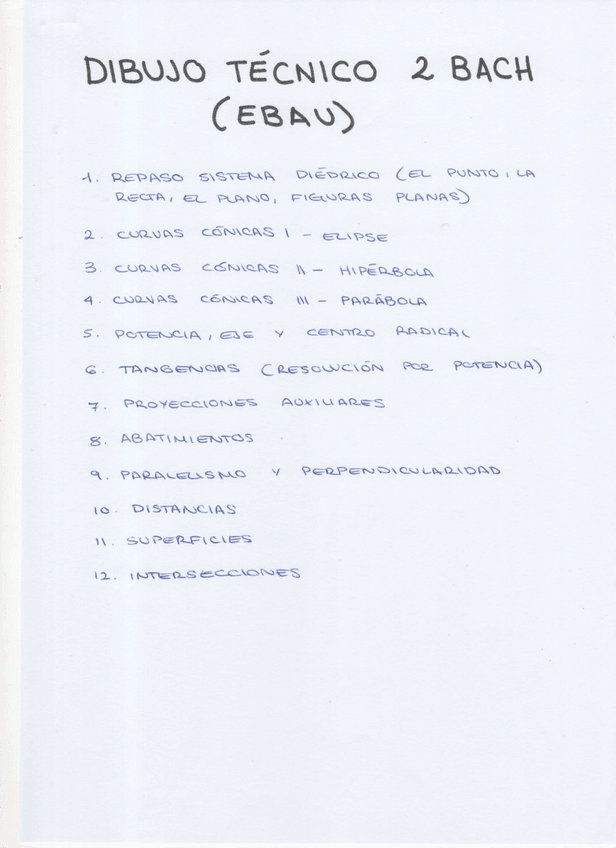 DIBUJO TÉCNICO 2 BACH
(EBAU)
1. REPASO SISTEMA DIÉDRICO (EL PUNTO, LA
RECTA, EL PLANO, FIGURAS PLANAS)
2. CURVAS CÓNICAS I - ELIPSE
3. CURVAS CÓNICAS II - HIPÉRBOLA
4. CURVAS CÓNICAS III - PARÁBOLA
5. POTENCIA, EJE Y CENTRO RADICAL
6. TANGENCIAS (RESOLUCIÓN POR POTENCIA)
7. PROYECCIONES AUXILIARES
8. ABATIMIENTOS
9. PARALELISMO Y PERPENDICULARIDAD
10. DISTANCIAS
11. SUPERFICIES
12. INTERSECCIONES